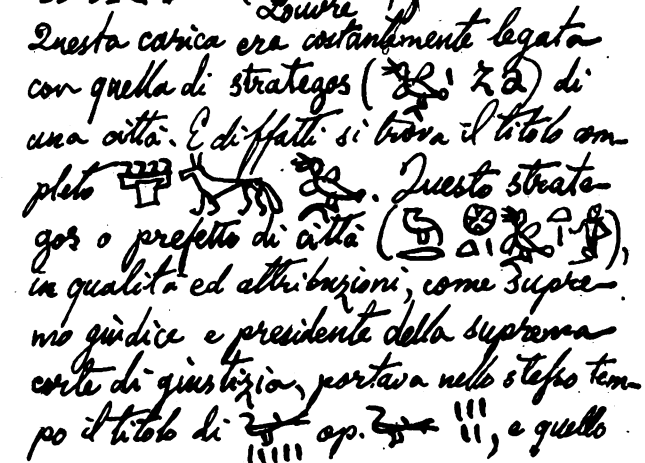 Louvre
Questa carica era costantemente legata
con quella di strategos ( ) di
una città. E diffatti si trova il titolo com-
pleto . Questo strate-
gos o prefetto di città ( ),
in qualità ed attribuzioni, come supre-
mo giudice e presidente della suprema
corte di giustizia, portava nello stesso tem-
po il titolo di op. , e quello